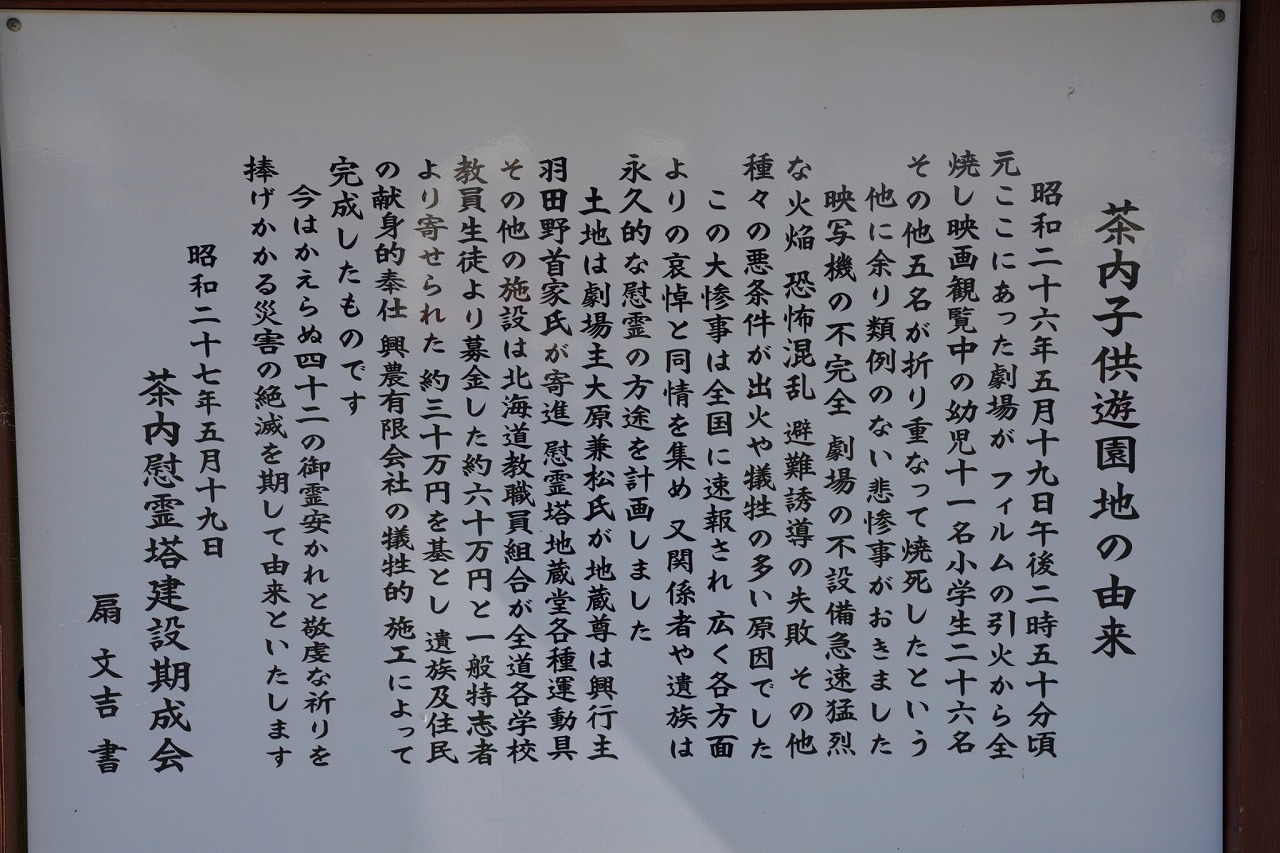 茶内子供遊園地の由来
昭和二十六年五月十九日午後二時五十分頃
元ここにあった劇場が フィルムの引火から全
焼し映画観覧中の幼児十一名小学生二十六名
その他五名が折り重なって焼死したという
他に余り類例のない悲惨事がおきました
映写機の不完全 劇場の不設備急速猛烈
な火焔 恐怖混乱 避難誘導の失敗 その他
種々の悪条件が出火や犠牲の多い原因でした
この大惨事は全国に速報され 広く各方面
よりの哀悼と同情を集め 又関係者や遺族は
永久的な慰霊の方途を計画しました
土地は劇場主大原兼松氏が地蔵尊は興行主
羽田野首家氏が寄進 慰霊塔地蔵堂各種運動具
その他の施設は北海道教職員組合が全道各学校
教員生徒より募金した約六十万円と一般特志者
より寄せられた約三十万円を基とし 遺族及住民
の献身的奉仕 興農有限会社の犠牲的 施工によって
完成したものです
今はかえらぬ四十二の御霊安かれと敬虔な祈りを
捧げかかる災害の絶滅を期して由来といたします
昭和二十七年五月十九日
茶内慰霊塔建設期成会
扇 文吉 書